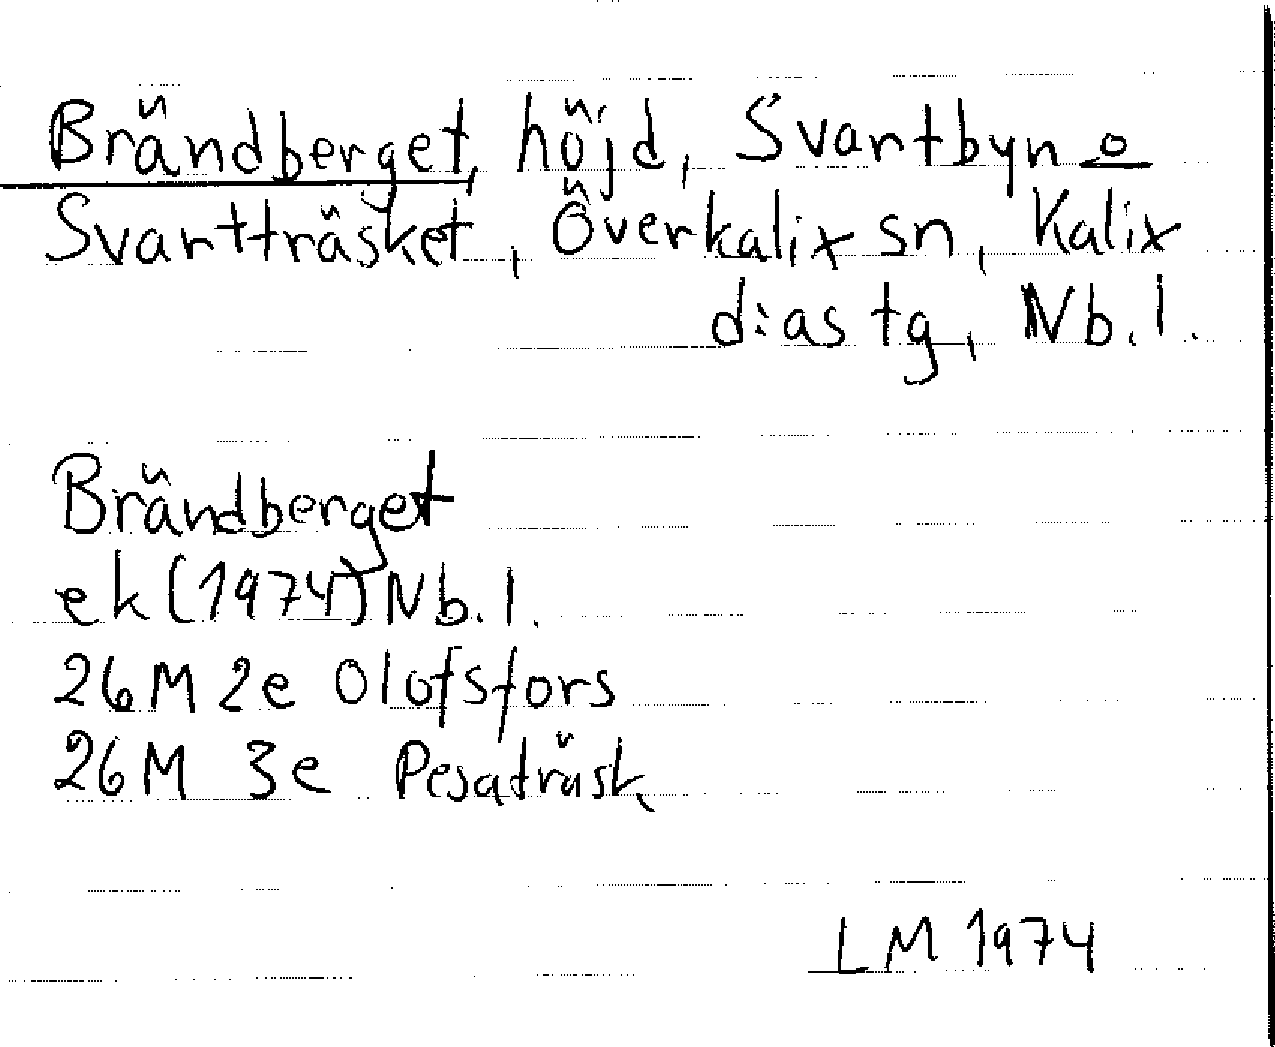 Brändberget, höjd, Svartbyn o
Svartträsket, Överkalix sn, Kalix
d:as tg, Nb.l.
Brändberget
ek (1974) Nb.l.
26M 2e Olofsfors
26M 3e Pesaträsk
LM 1974